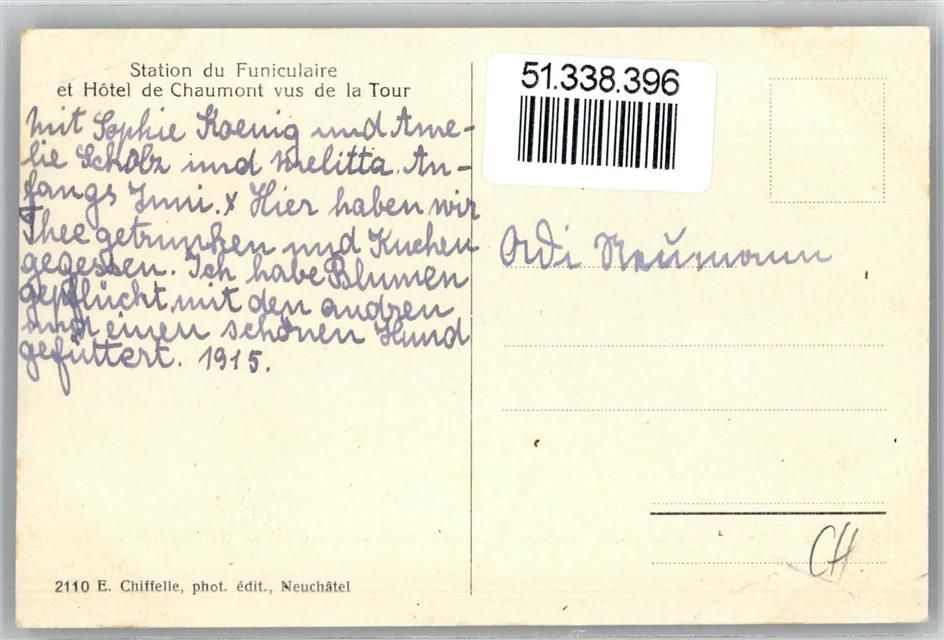 Station du Funiculaire
et Hôtel de Chaumont vus de la Tour
Mit Sophie Koenig und Ame-
lie Scholz und Melitta. An-
fangs Juni. x Hier haben wir
Thee getrunken und Kuchen
gegessen. Ich habe Blumen
gepflücht mit den andren
und einen schönen Hund
gefüttert. 1915.
51.338.396
Adi Neumann
CH.
2110 E. Chiffelle, phot. édit., Neuchâtel